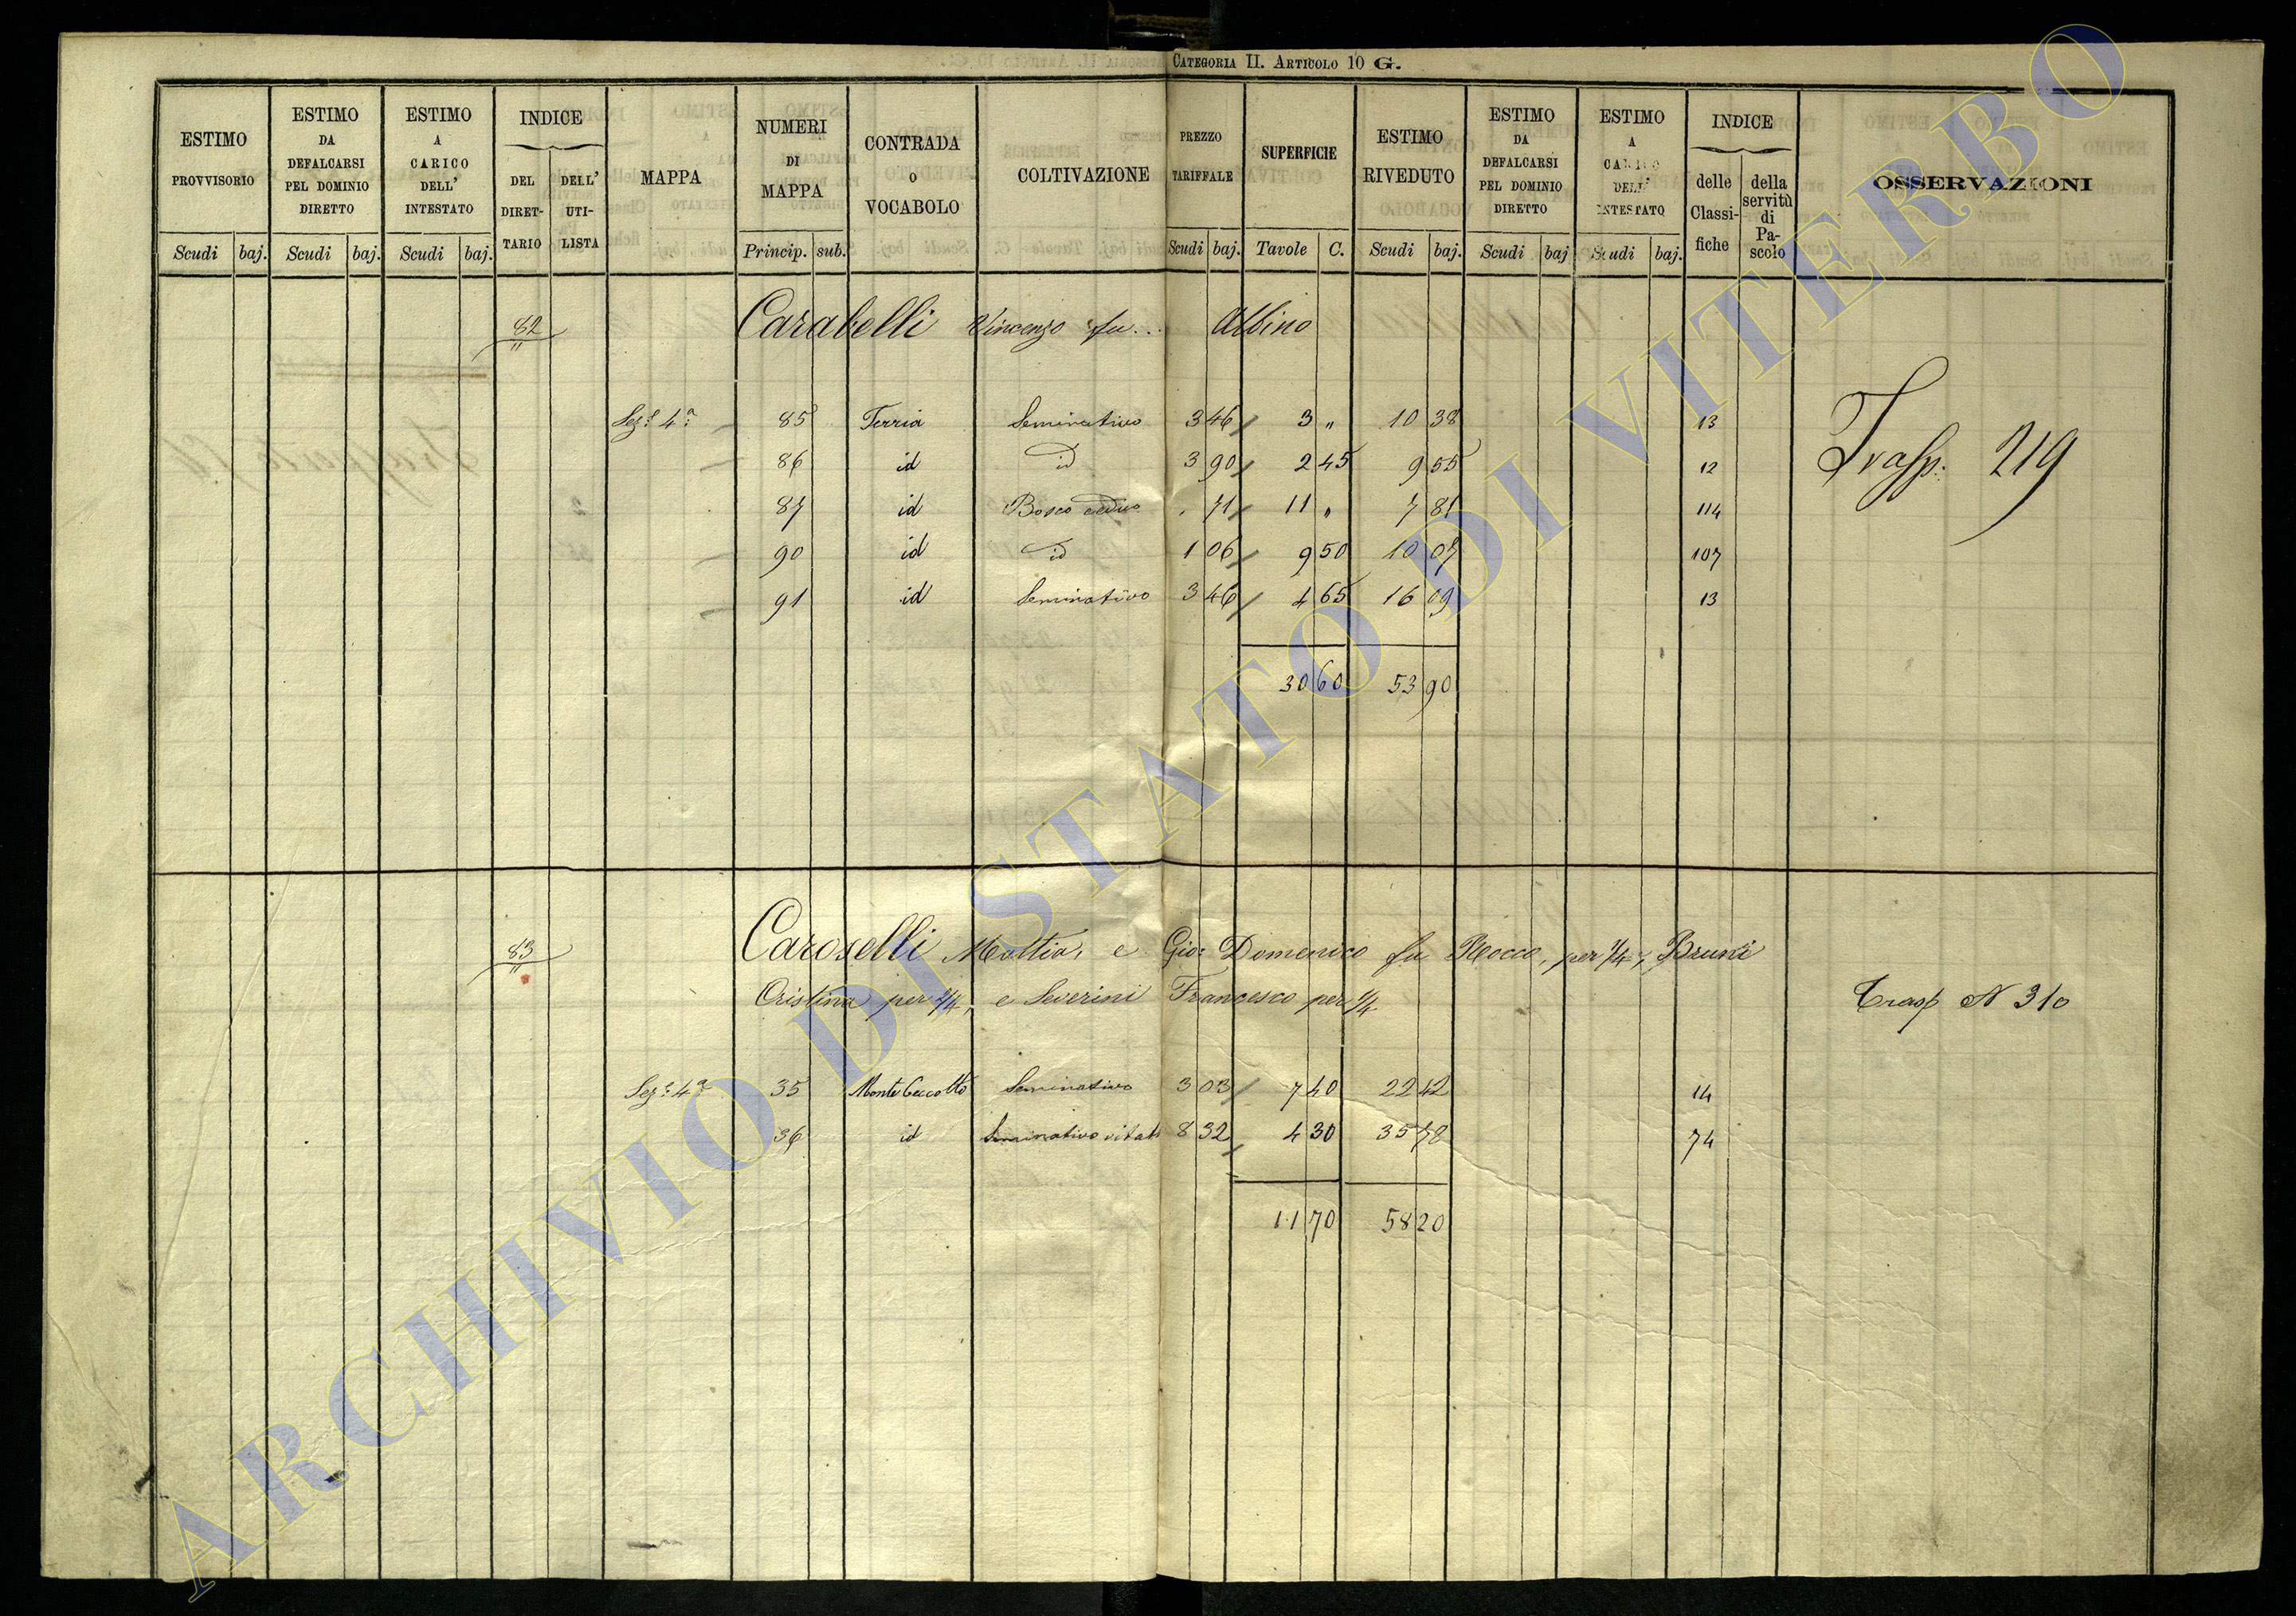 CATEGORIA II. ARTICOLO 10 G.
ESTIMO PROVVISORIO Scudi baj. ESTIMO DA DEFALCARSI PEL DOMINIO DIRETTO Scudi baj. ESTIMO A CARICO DELL' INTESTATO Scudi baj. INDICE DEL DIRETTARIO DELL' UTILISTA MAPPA NUMERI DI MAPPA Princip. sub. CONTRADA O VOCABOLO COLTIVAZIONE PREZZO TARIFFALE Scudi baj. SUPERFICIE Tavole C. ESTIMO RIVEDUTO Scudi baj. ESTIMO DA DEFALCARSI PEL DOMINIO DIRETTO Scudi baj ESTIMO A CARICO DELL' INTESTATO Scudi baj. INDICE delle Classifiche della servitù di Pascolo OSSERVAZIONI
82 Carabelli Vincenzo fu... Albino
Sez.e 4a 85 Terria Seminativo 3 46 3 " 10 38 13 Trasp. 219
86 id id 3 90 2 45 9 55 12
87 id Bosco ceduo . 71 11 " 7 81 114
90 id id 1 06 9 50 10 07 107
91 id Seminativo 3 46 4 65 16 09 13
30 60 53 90
83 Caroselli Mattia, e Gio: Domenico fu Rocco, per 1/4, Bruni
Cristina per 2/4, e Severini Francesco per 1/4 Trasp N 310
Sez.e 4a 35 Monte Ceccotto Seminativo 3 03 7 40 22 42 14
36 id Seminativo vitato 8 32 4 30 35 78 74
11 70 58 20
ARCHIVIO DI STATO DI VITERBO